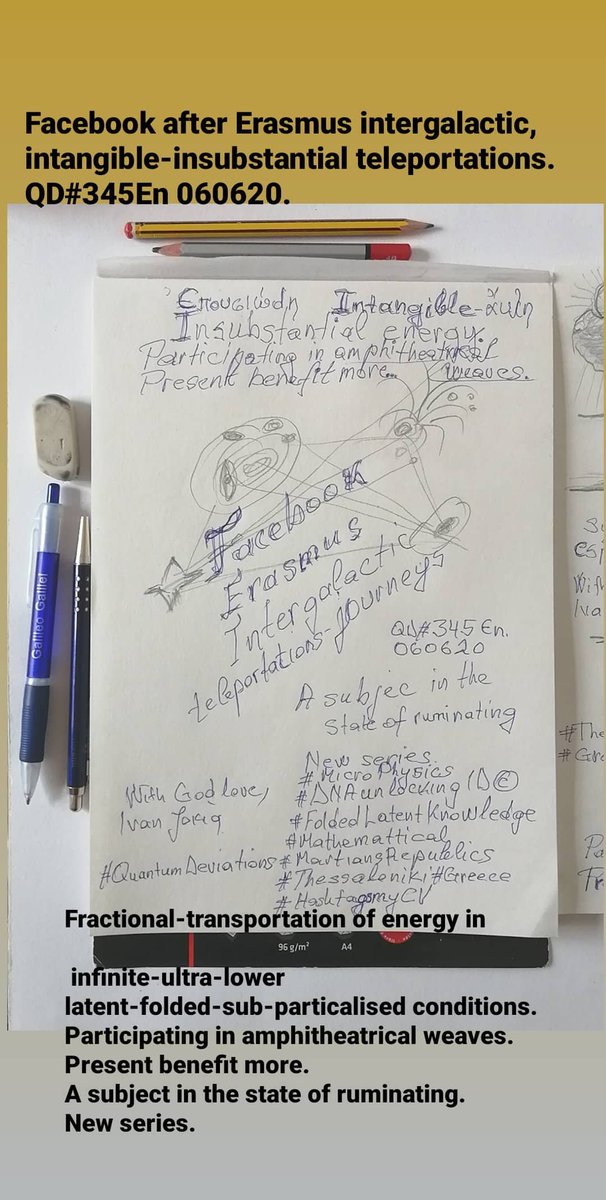 Facebook after Erasmus intergalactic,
intangible-insubstantial teleportations.
QD#345En 060620.
Επουσιώδη Intangible-άυλη
Insubstantial energy.
Participating in amphitheatrical
weaves.
Present benefit more...
Facebook
Erasmus
Intergalactic
teleportations-journeys
QD#345En.
060620
A subjec in the
state of ruminating
New series.
#MicroPhysics
#DNAunlocking
#FoldedLatentKnowledge
#Mathemattical
#QuantumDeviations #MartiansRepublics
#Thessaloniki#Greece
#HashtagsmyCV
With God love,
Ivan
Galileo Galilei
96 g/m² A4
Fractional-transportation of energy in
infinite-ultra-lower
latent-folded-sub-particalised conditions.
Participating in amphitheatrical weaves.
Present benefit more.
A subject in the state of ruminating.
New series.